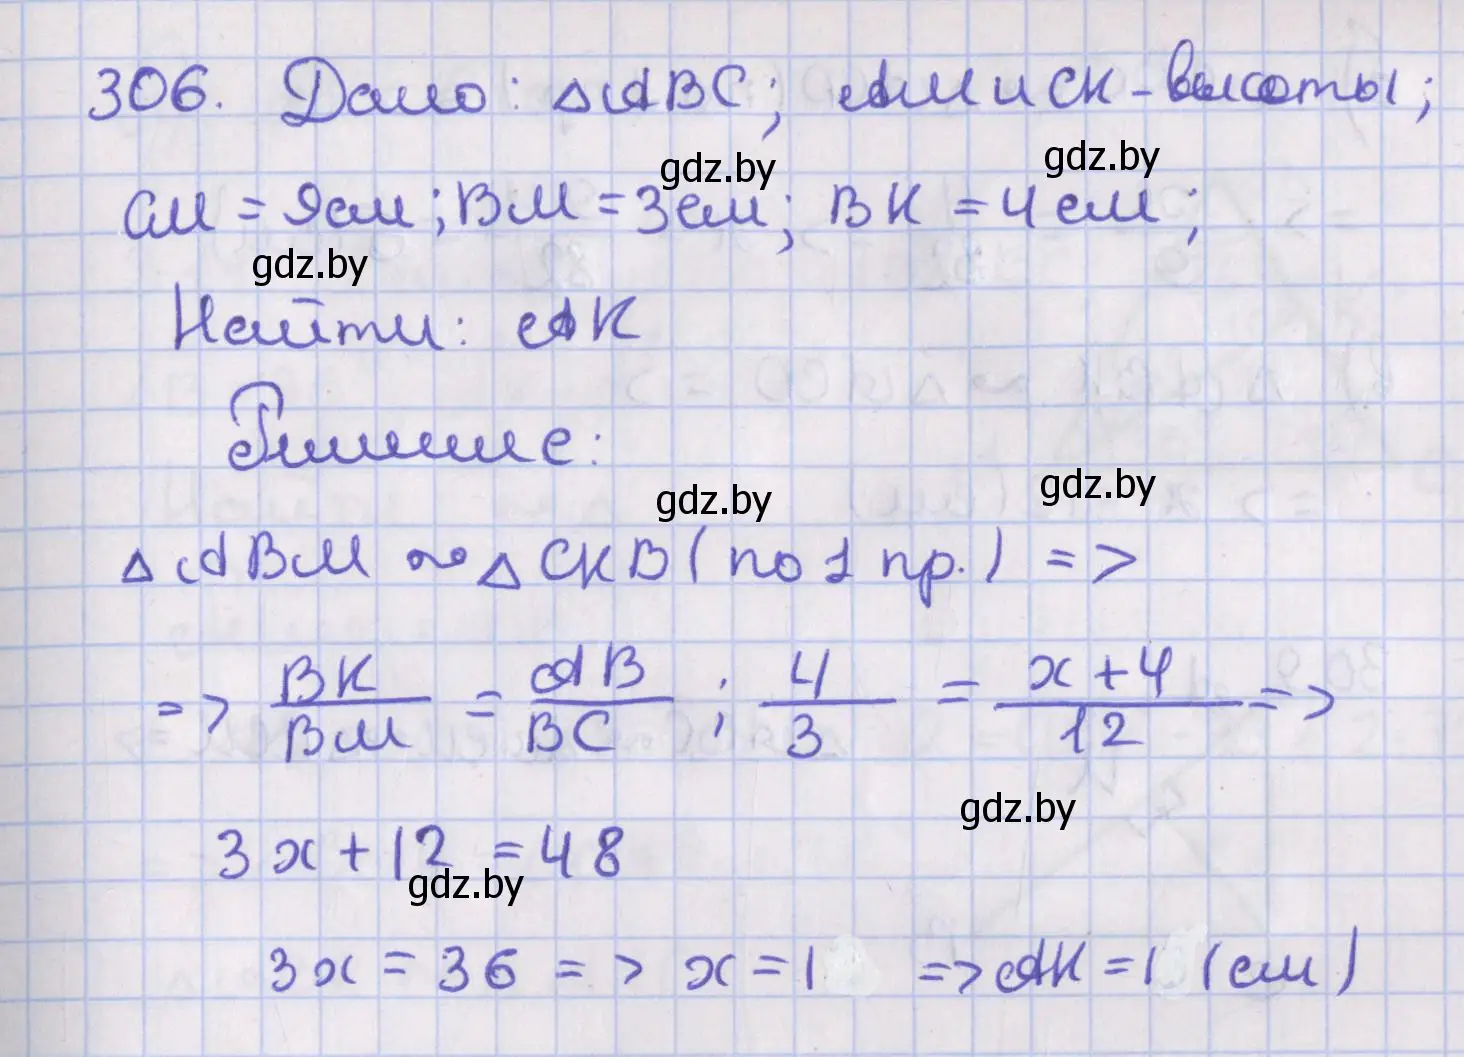 306. Дано: △ABC; AM и CK - высоты;
gdz.by gdz.by
CM = 9см; BM = 3см; BK = 4см;
gdz.by
Найти: AK
Решение:
gdz.by gdz.by
△ABM ∾ △CKB (по 1 пр.) =>
=> BK/BM = AB/BC ; 4/3 = x+4/12 =>
gdz.by
3x + 12 = 48
gdz.by
3x = 36 => x = 1 => AK = 1 (см)